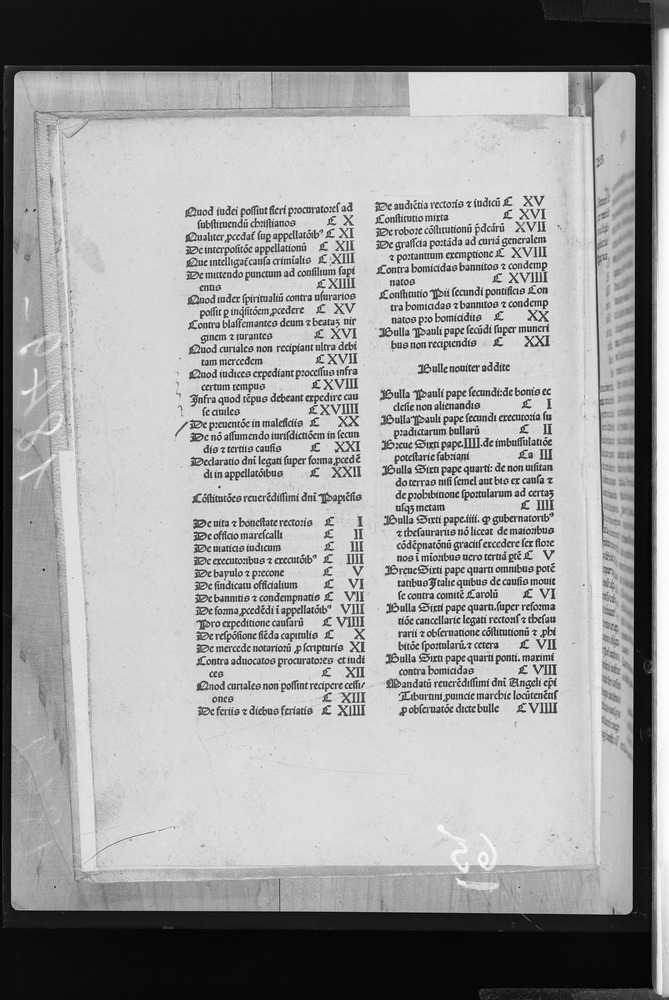 Quod iudei possint fieri procuratores ad
substituendũ christianos C X
Qualiter ꝓcedat̃ sup appellatõib⁹ C XI
De interpositõe appellationũ C XII
Que intelligat̃ causa crimĩalis C XIII
De mittendo punctum ad consilium sapi
entis C XIIII
Quod iudex spiritualiũ contra usurarios
possit ꝑ inq̃sitõem ꝓcedere C XV
Contra blasfemantes deum ⁊ beataꝫ uir
ginem ⁊ iurantes C XVI
Quod curiales non recipiant ultra debi
tam mercedem C XVII
Quod iudices expediant processus infra
certum tempus C XVIII
Infra quod tẽpus debeant expedire cau
se ciuiles C XVIIII
De preuentõe in maleficiis C XX
De nõ assumendo iurisdictiõem in secun
dis ⁊ tertiis causis C XXI
Declaratio dñi legati super forma ꝓcedẽ
di in appellatõibus C XXII
Cõstitutões reuerẽdissimi dñi Papiẽsis
De uita ⁊ honestate rectoris C I
De officio marescalli C II
De uiaticis iudicum C III
De executoribus ⁊ executõib⁹ C IIII
De bayulo ⁊ precone C V
De sindicatu officialium C VI
De bannitis ⁊ condempnatis C VII
De forma ꝓcedẽdi ĩ appellatõib⁹ VIII
Pro expeditione causarũ C VIIII
De respõsione fiẽda capitulis C X
De mercede notariorũ ꝓ scripturis XI
Contra aduocatos procuratores et iudi
ces C XII
Quod curiales non possint recipere cessi
ones C XIII
De feriis ⁊ diebus feriatis C XIIII
De audiẽtia rectoris ⁊ iudicũ C XV
Constitutio mixta C XVI
De robore cõstitutionũ p̃dcãrũ XVII
De grascia portãda ad curiã generalem
⁊ portantium exemptione C XVIII
Contra homicidas bannitos ⁊ condemp
natos C XVIIII
Constitutio Pii secundi pontificis Con
tra homicidas ⁊ bannitos ⁊ condemp
natos pro homicidiis C XX
Bulla Pauli pape secũdi super muneri
bus non recipiendis C XXI
Bulle nouiter addite
Bulla Pauli pape secundi:de bonis ec
clesie non alienandis C I
Bulla Pauli pape secundi executoria su
pradictarum bullarũ C II
Breue Sixti pape.IIII.de imbussulatiõe
potestarie fabriani Ca III
Bulla Sixti pape quarti: de non uisitan
do terras nisi semel aut bis ex causa ⁊
de prohibitione sportularum ad certaꝫ
usqꝫ metam C IIII
Bulla Sixti pape.iiii. ꝙ gubernatorib⁹
⁊ thesaurariis nõ liceat de maioribus
cõdẽpnatõnũ gratiis excedere sex flore
nos ĩ mĩoribus uero tertiã ptẽ C V
Breue Sixti pape quarti omnibus potẽ
tatibus Italie quibus de causis mouit
se contra comitẽ Carolũ C VI
Bulla Sixti pape quarti.super reforma
tiõe cancellarie legati rectoris ⁊ thesau
rarii ⁊ obseruatione cõstitutionũ ⁊ ꝓhi
bitõe sportularũ ⁊ cetera C VII
Bulla Sixti pape quarti ponti. maximi
contra homicidas C VIII
Mandatũ reuerẽdissimi dñi Angeli ep̃i
Tiburtini ꝓuincie marchie locũtenẽtis
ꝓ obseruatõe dicte bulle C VIIII